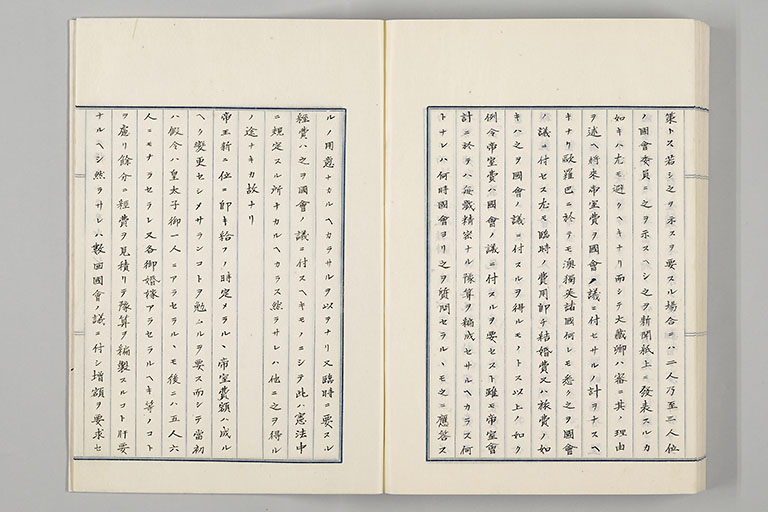 策トス若シ之ヲ示スヲ要スル場合ニハ一人乃至二人位
ノ國會委員ニ之ヲ示スヘシ之ヲ新聞紙上ニ發表スルカ
如キハ尤モ避クヘキナリ而シテ大藏卿ハ審ニ其ノ理由
ヲ述ヘ將來帝室費ヲ國會ノ議ニ付セサルノ計ヲナスヘ
キナリ歐羅巴ニ於テモ澳獨英諸國何レモ悉ク之ヲ國會
ノ議ニ付セス尤モ臨時ノ費用卽チ結婚費又ハ旅費ノ如
キハ之ヲ國會ノ議ニ付スルヲ得ルモノトス以上ノ如ク
例令帝室費ハ國會ノ議ニ付スルヲ要セスト雖モ帝室會
計ニ於テハ每歲精密ナル豫算ヲ編成セサルヘカラス何
トナレハ何時國會ヨリ之ヲ質問セラルヽモ之ニ應答ス
ルノ用意ナカルヘカラサルヲ以テナリ又臨時ニ要スル
經費ハ之ヲ國會ノ議ニ付スヘキモノニシテ此ハ憲法中
ニ規定スル所ナカルヘカラス然ラサレハ他ニ之ヲ得ル
ノ途ナキカ故ナリ
帝王新ニ位ニ卽キ給フノ時定メラルヽ帝室費額ハ成ル
ヘク變更セシメサランコトヲ勉ムルヲ要ス而シテ當初
ハ假令ハ皇太子御一人ニアラセラルヽモ後ニハ五人六
人ニモナラセラレ又各御婚嫁アラセラルヘキ等ノコト
ヲ慮リ餘分ニ經費ヲ見積リテ豫算ヲ編製スルコト肝要
ナルヘシ然ラサレハ數囬國會ノ議ニ付シ增額ヲ要求セ